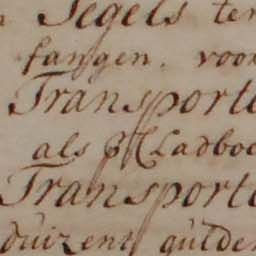 Segels ten
fangen. voor
Transporte
als Kladboe
Transporte
duizent gulden